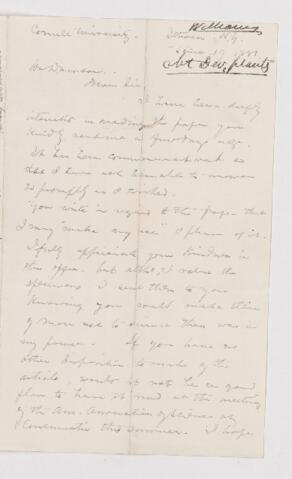 Williams
Cornell University.
Ithaca, N.Y.
June 17, 1881
Dev. plants
Dr Dawson.
Dear Sir
I have been deeply
interested in reading the paper you
kindly sent me a few days ago.
It has been commencement week so
that I have not been able to answer
as promptly as I wished.
You write in regard to the paper that
I may "make any use" I please of it.
I fully appreciate your kindness in
this offer. but altho, I value the
specimens I sent them to you
knowing you would make them
of more use to science than was in
my power. If you have no
other disposition to make of the
article, would it not be a good
plan to have it read at the meeting
of the Am. Association of Science at
Cincinnatti this summer. I hope